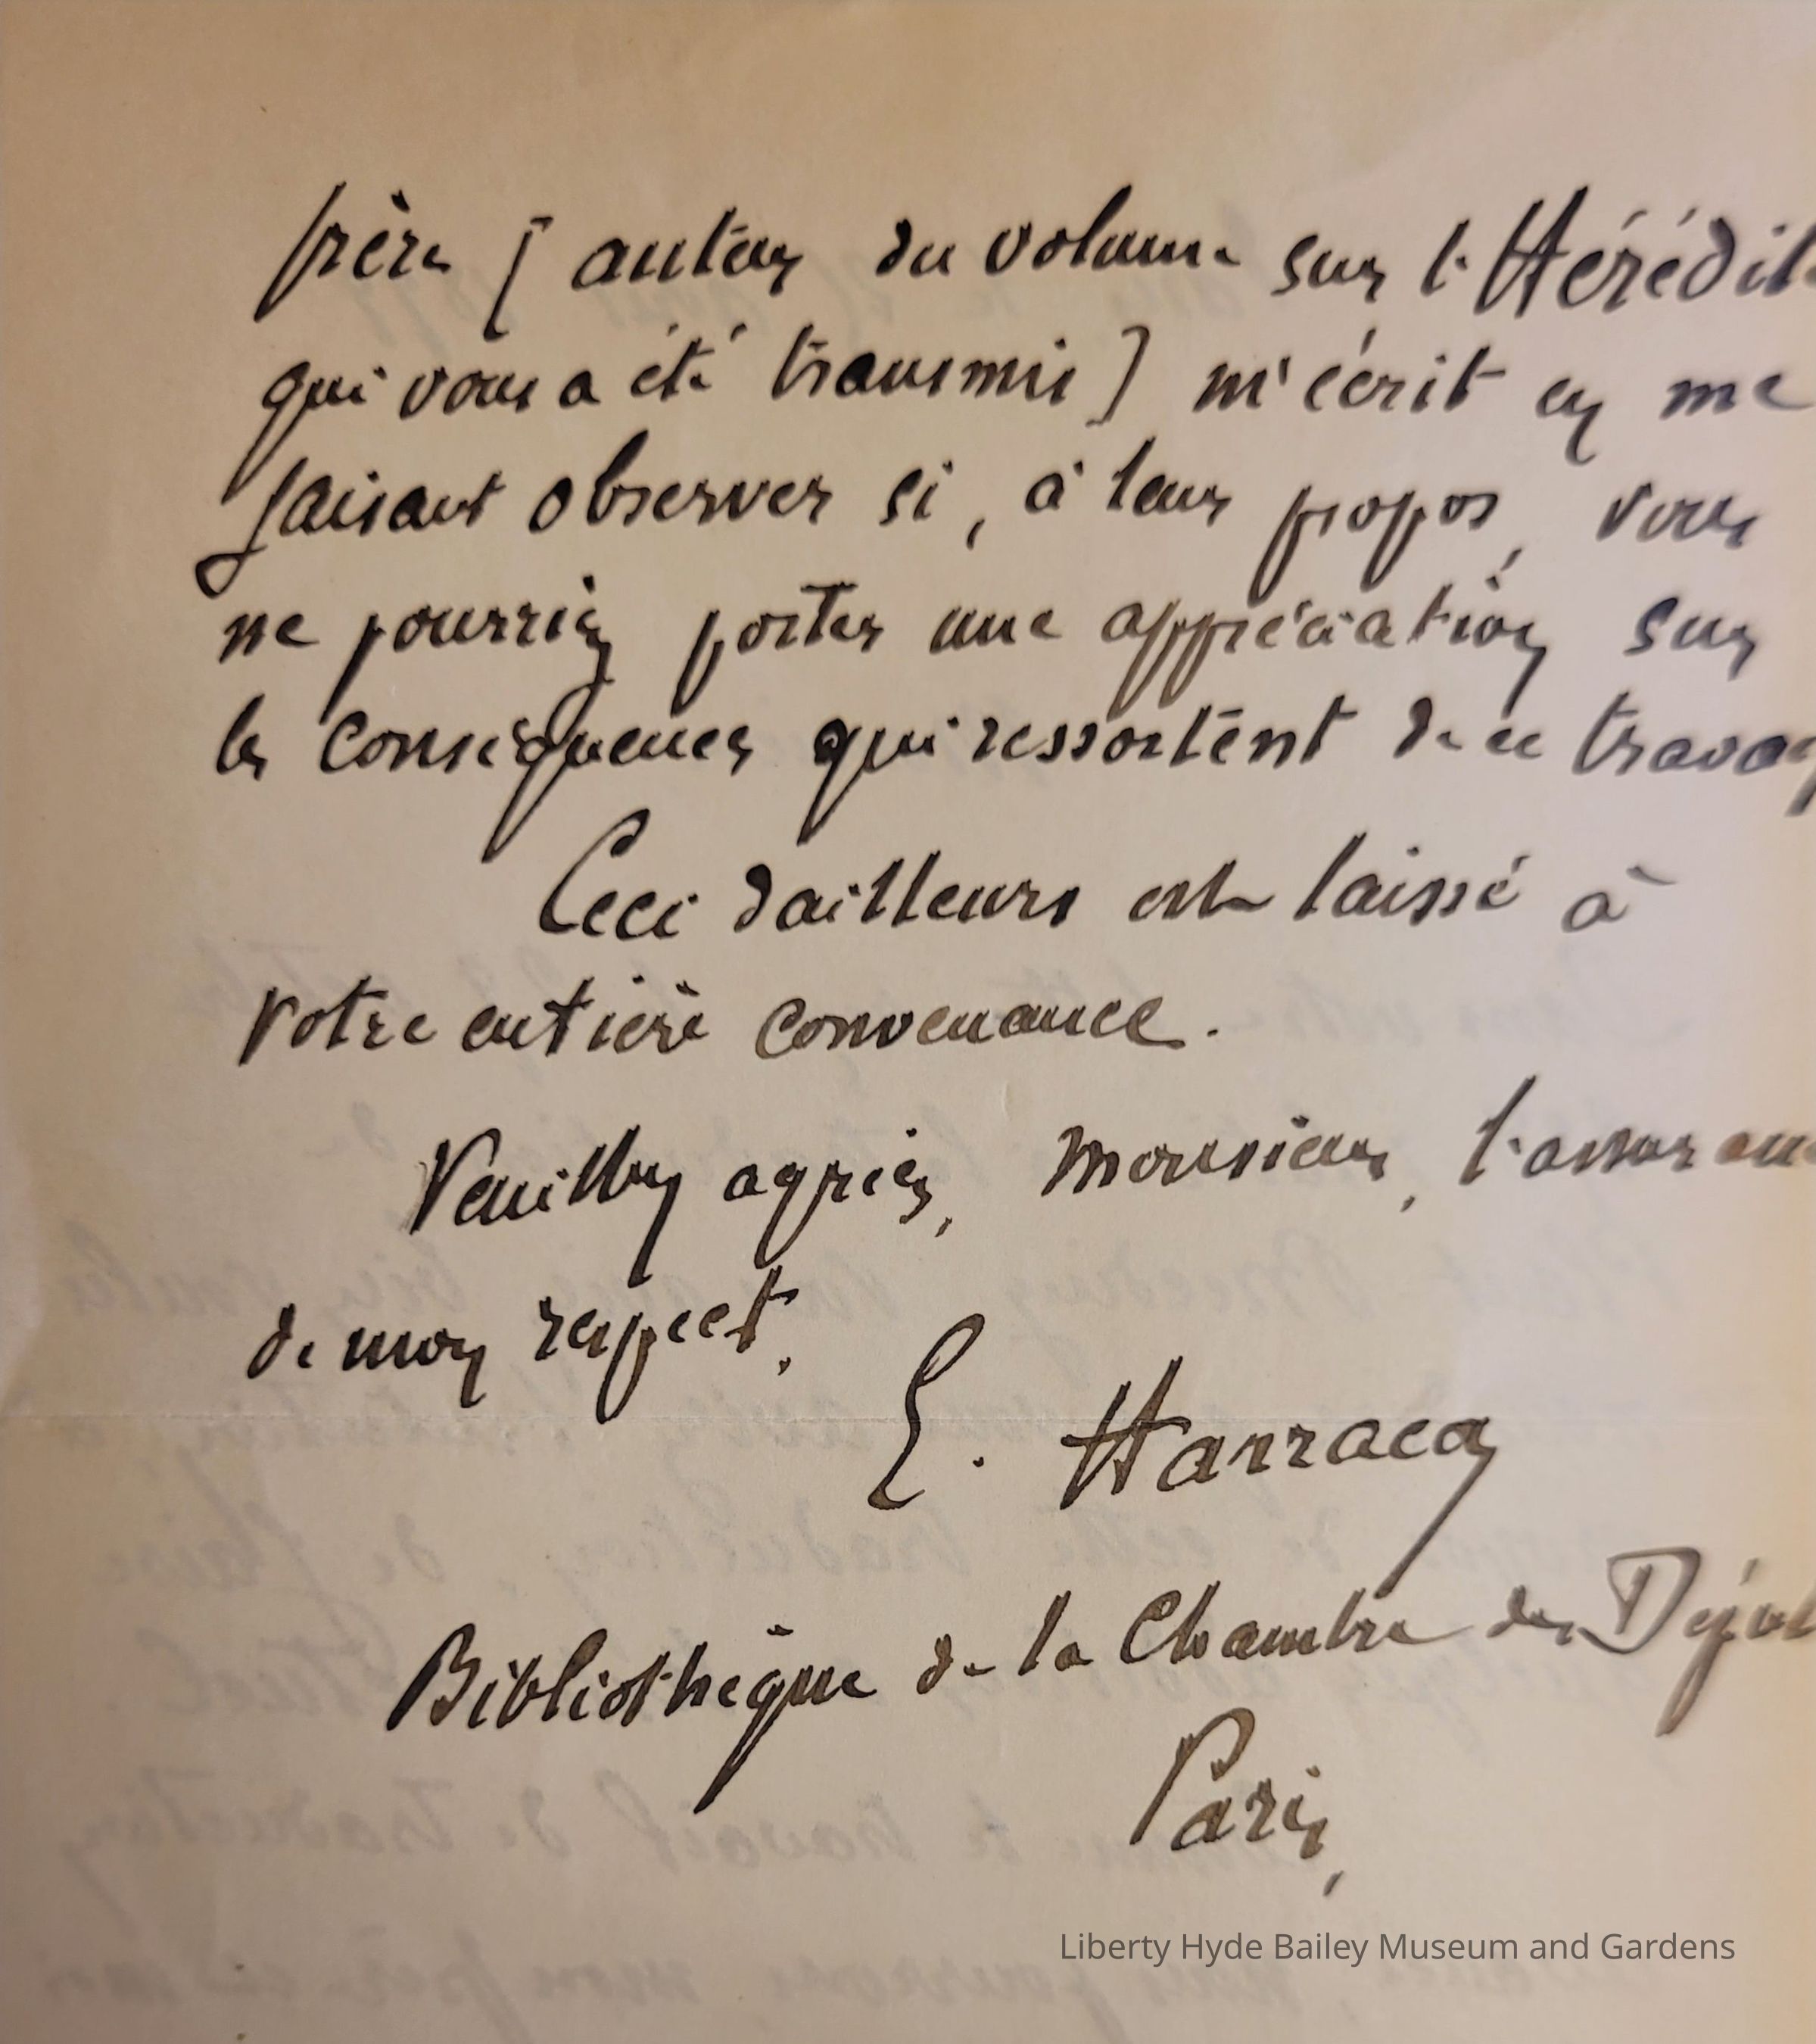 père [ auteur du volume sur l'Hérédité
qui vous a été transmis ] m'écrit en me
faisant observer si, à leur propos, vous
ne pourriez porter une appréciation sur
les conséquences qui ressortent de ce travail
Ceci d'ailleurs est laissé à
votre entière convenance.
Veuillez agréer, Monsieur, l'assurance
de mon respect.
E. Harracq
Bibliothèque de la Chambre des Déput
Paris,
Liberty Hyde Bailey Museum and Gardens